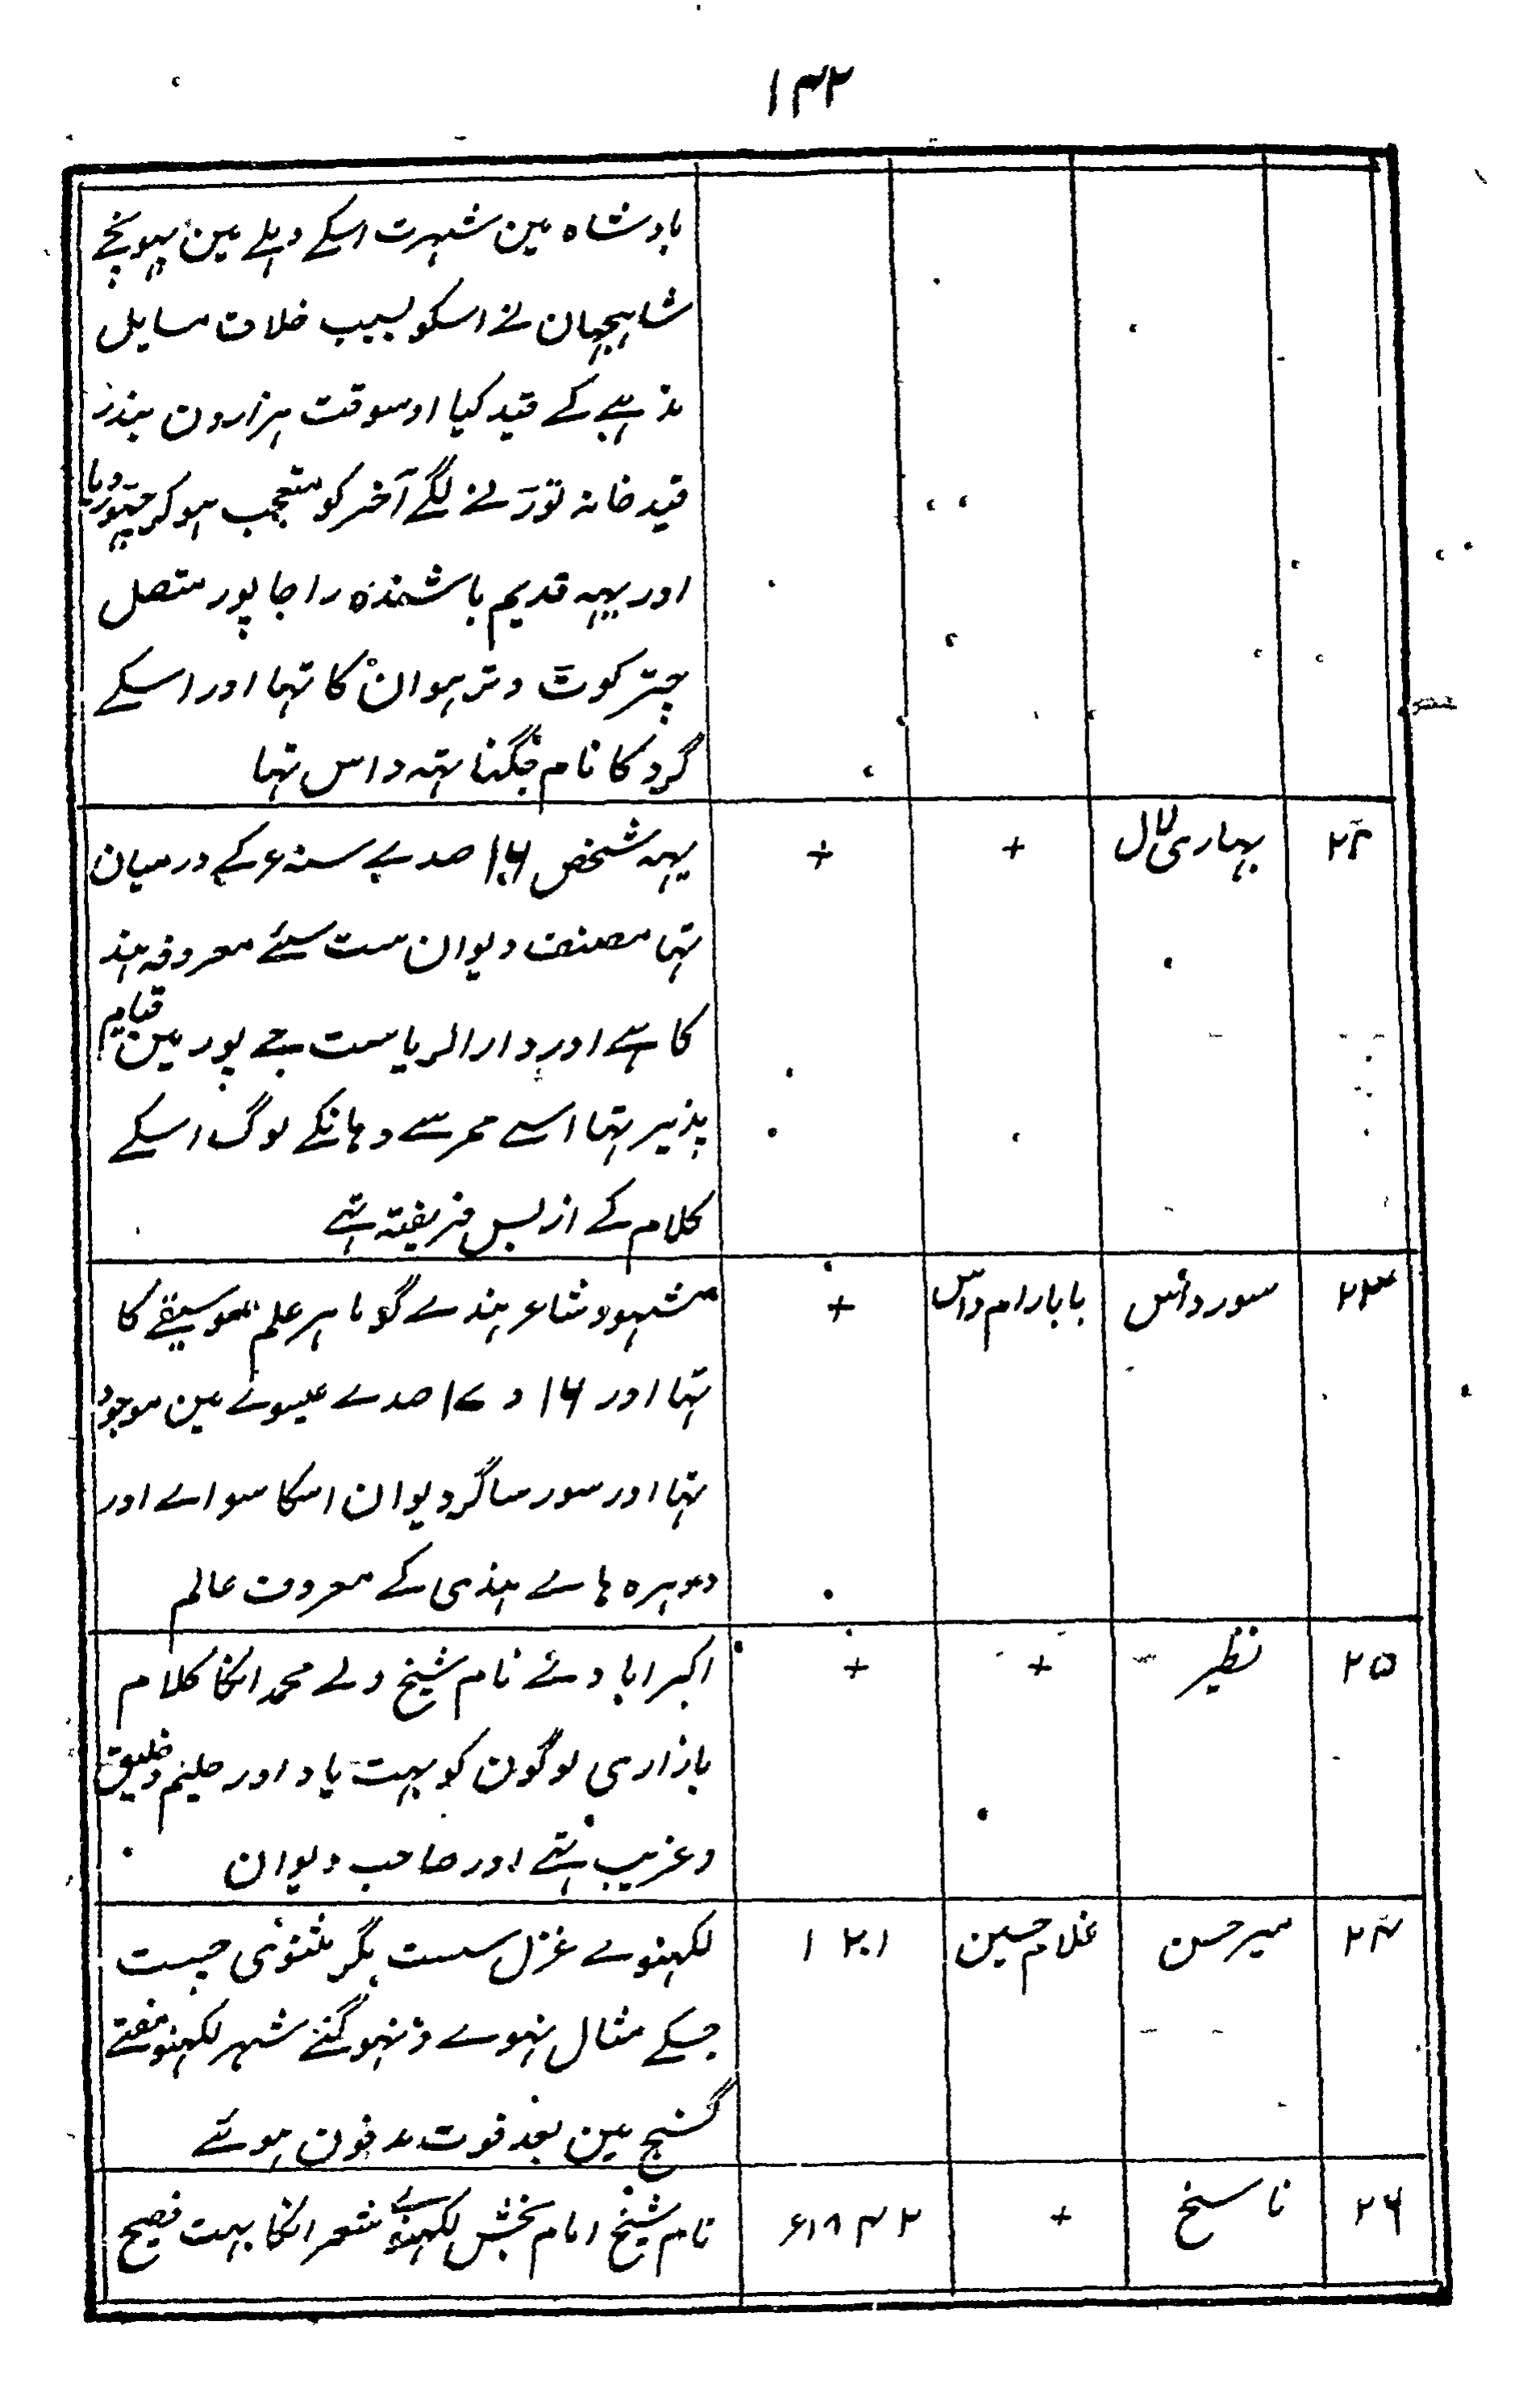 ۱۴۲
بادشاہ مین شہرت اسکے دہلے مین پہونچے
شاہجہان نے اسکو بسبب خلاف مسایل
مذہبے کے قید کیا اوسوقت ہزارون بندر
قید خانہ توڑنے لگے آخر کو متعجب ہو کر چہوڑ دیا
اور یہہ قدیم باشندہ راجاپور متصل
چترکوٹ و ترہوان کا تہا اور اسکے
گرو کا نام جگناتہہ داس تہا
۲۲ بہاری لال + + یہہ شخص ۱۶ صدے سنہ ء کے درمیان
تہا مصنف دیوان ست سئے معروفہ ہند
کا ہے اور دارالریاست جے پور مین قیام
پذیر تہا اسے ممر سے وہانکے لوگ اسکے
کلام کے از بس فریفتہ تہے
۲۳ سورداس بابا رام داس + مشہور شاعر ہندے گو ماہر علم موسیقے کا
تہا اور ۱۶ و ۱۷ صدے عیسوے مین موجود
تہا اور سور ساگر دیوان اسکا سواے اور
دوہرہ ہاے ہندی کے معروف عالم
۲۵ نظیر + + اکبرابادئے نام شیخ ولے محمد انکا کلام
بازاری لوگون کو بہت یاد اور حلیم و خلیق
و غریب تہے اور صاحب دیوان
۲۴ میر حسن غلام حسین ۱۲۰۱ لکہنوے غزل سست مگر مثنوی چست
جسکے مثال نہوے و نہوگئے شہر لکہنو مفتے
گنج مین بعد فوت مدفون ہوئے
۲۶ ناسخ + ۱۸۴۲ء نام شیخ امام بخش لکہنوے شعر انکا بہت فصیح